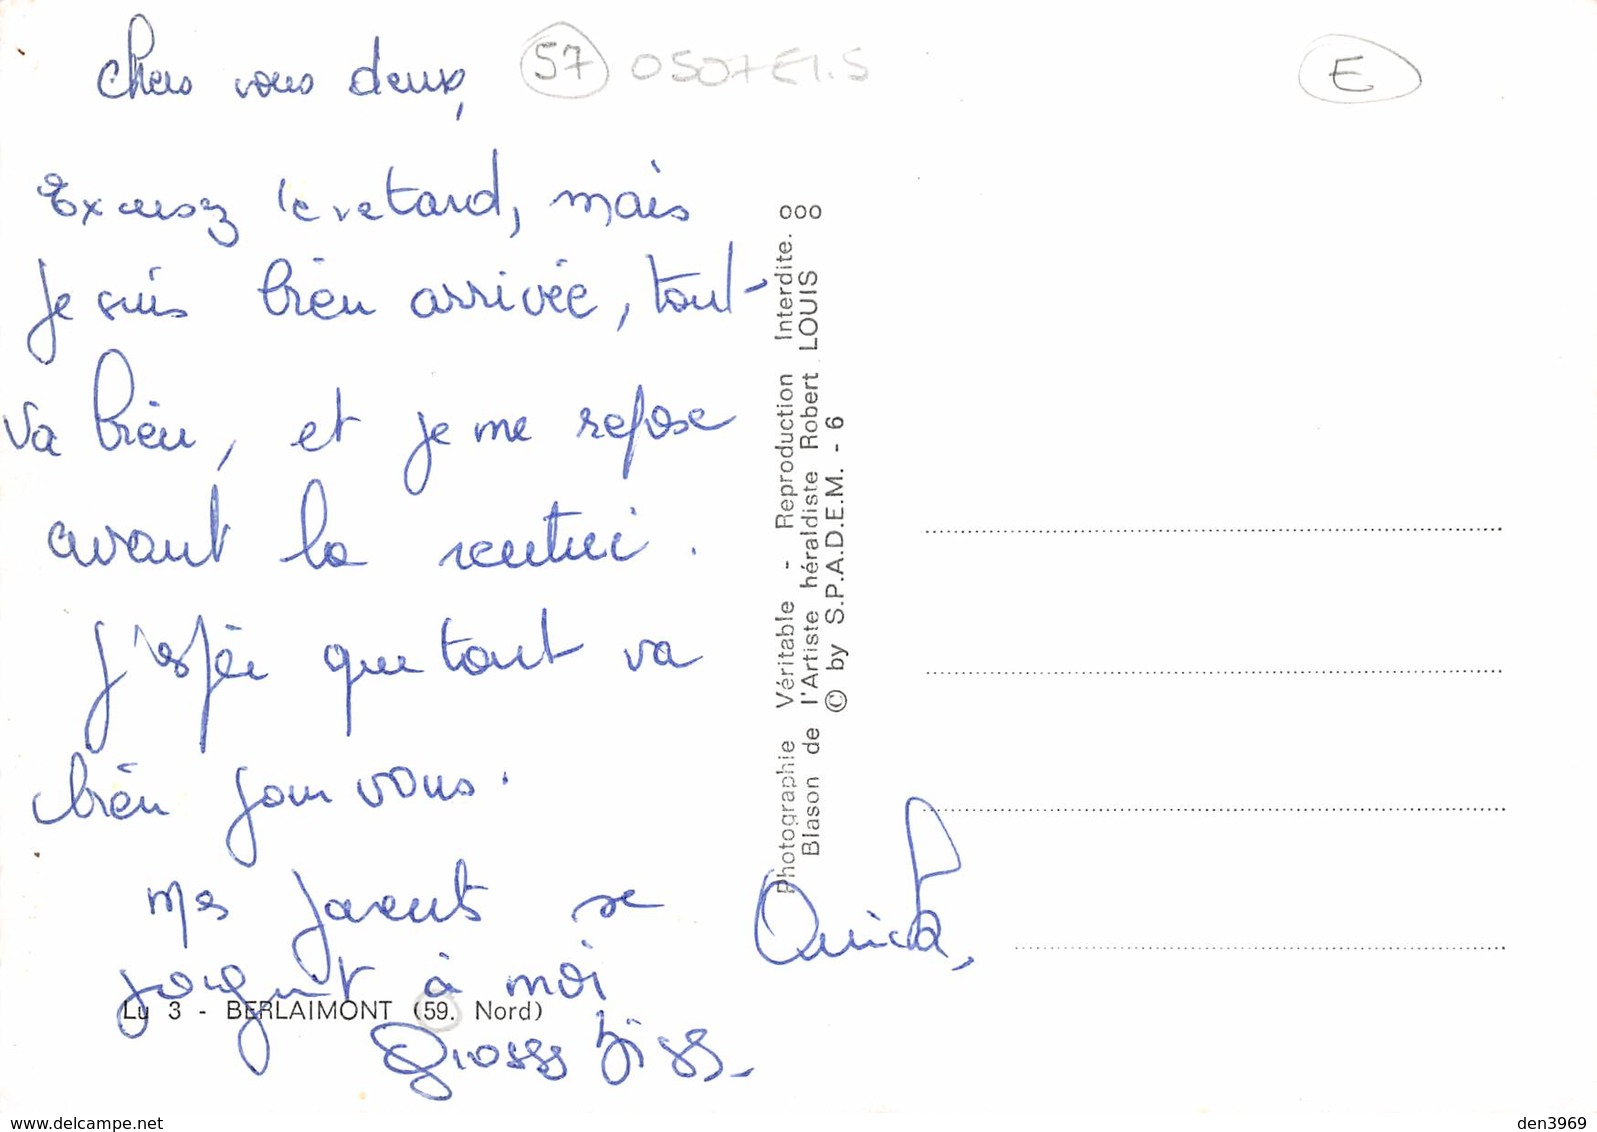 chers vous deux,
57
0507E1.5
E
Excusez le retard, mais
je suis bien arrivée, tout
va bien, et je me repose
avant la rentrée.
J'espère que tout va
bien pour vous.
Mes parents se
joignent à moi
Grosses bises
Lu 3 - BERLAIMONT (59. Nord)
Photographie Véritable - Reproduction Interdite.
Blason de l'Artiste héraldiste Robert LOUIS
© by S.P.A.D.E.M. - 6
www.delcampe.net
den3969